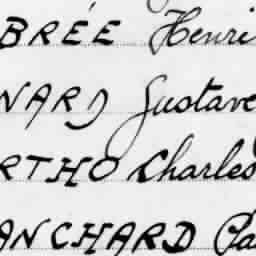 BRÉE Henri
NARD Gustave
RTHO Charles
ANCHARD Pa